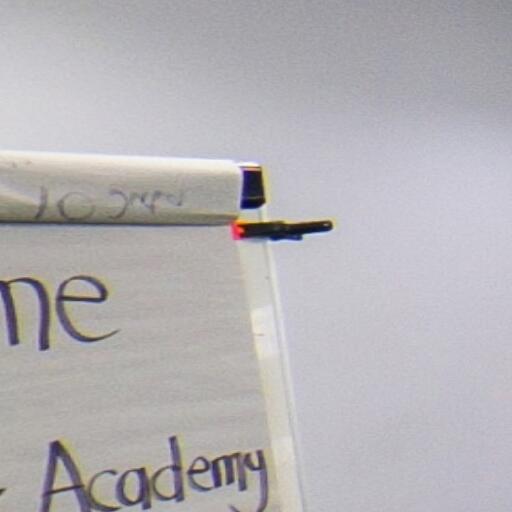 ne
Academy